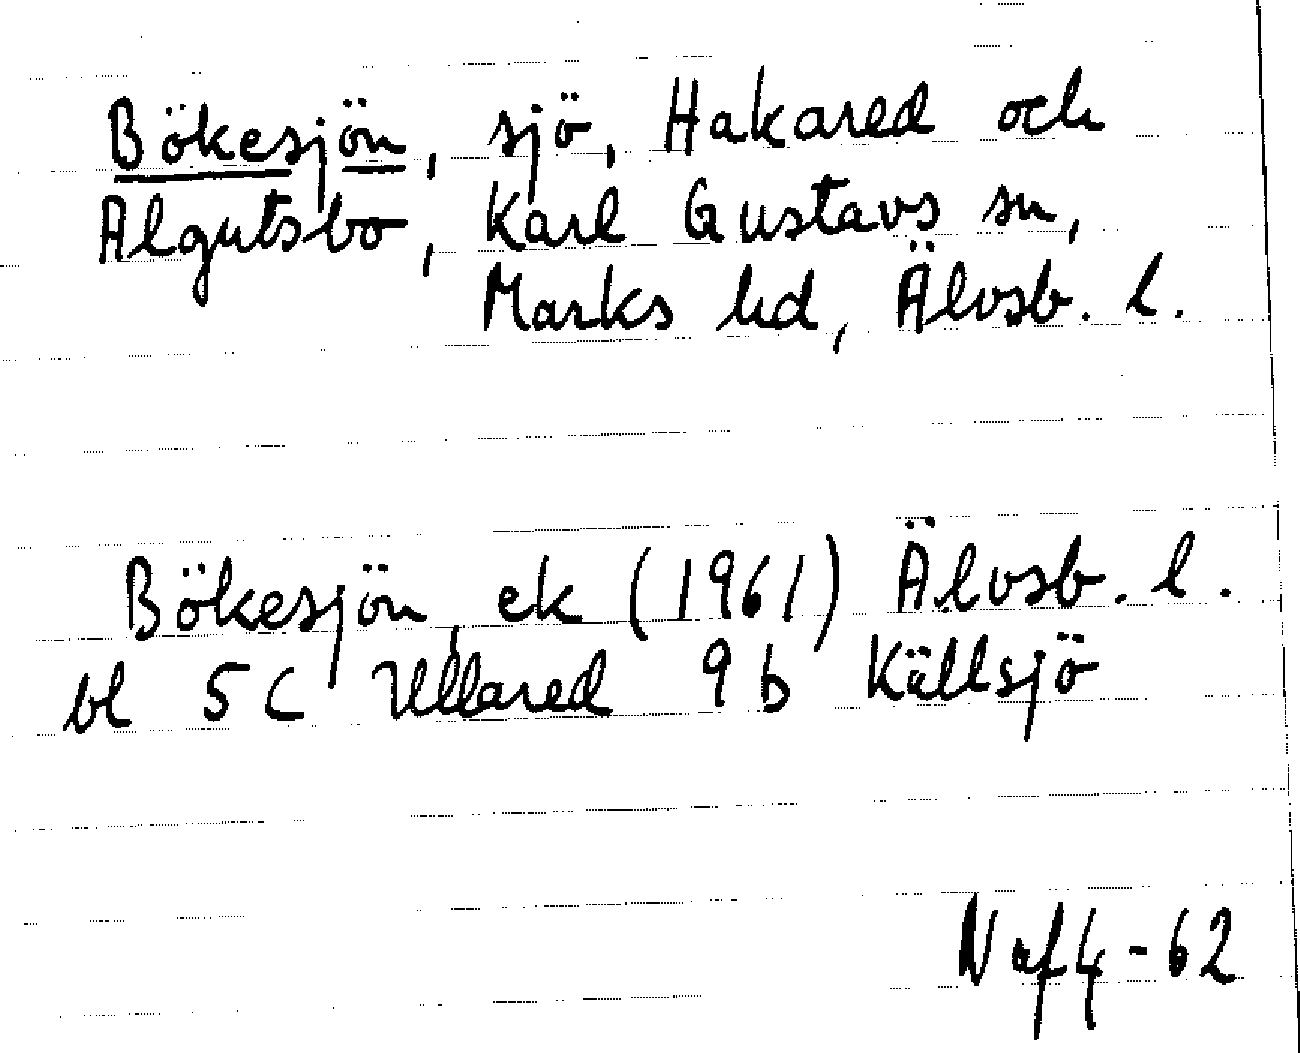 Bökesjön, sjö, Hakared och
Algutsbo, Karl Gustavs sn,
Marks hd, Älvsb. l.
Bökesjön, ek (1961) Älvsb. l.
bl 5C Ullared 9b Källsjö
N af 4-62